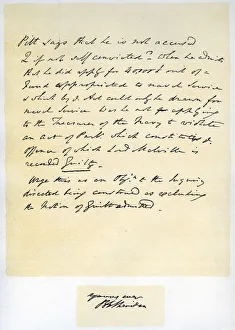 Pitt says that he is not accused
Q if not self convicted? when he admits
that he did apply for 40000£ out of a
Fund appropriated to naval Service
& which by d. Act could only be drawn for
naval Service. Was not he applying
to the Treasurer of the Navy to violate
an act of Parlt which constituted
offence of which Lord Melville is
recorded Guilty.
Urge this as an Objn to the Inquiry
directed being construed as excluding
the Notion of Guilt admitted.
yours ever
R B Sheridan